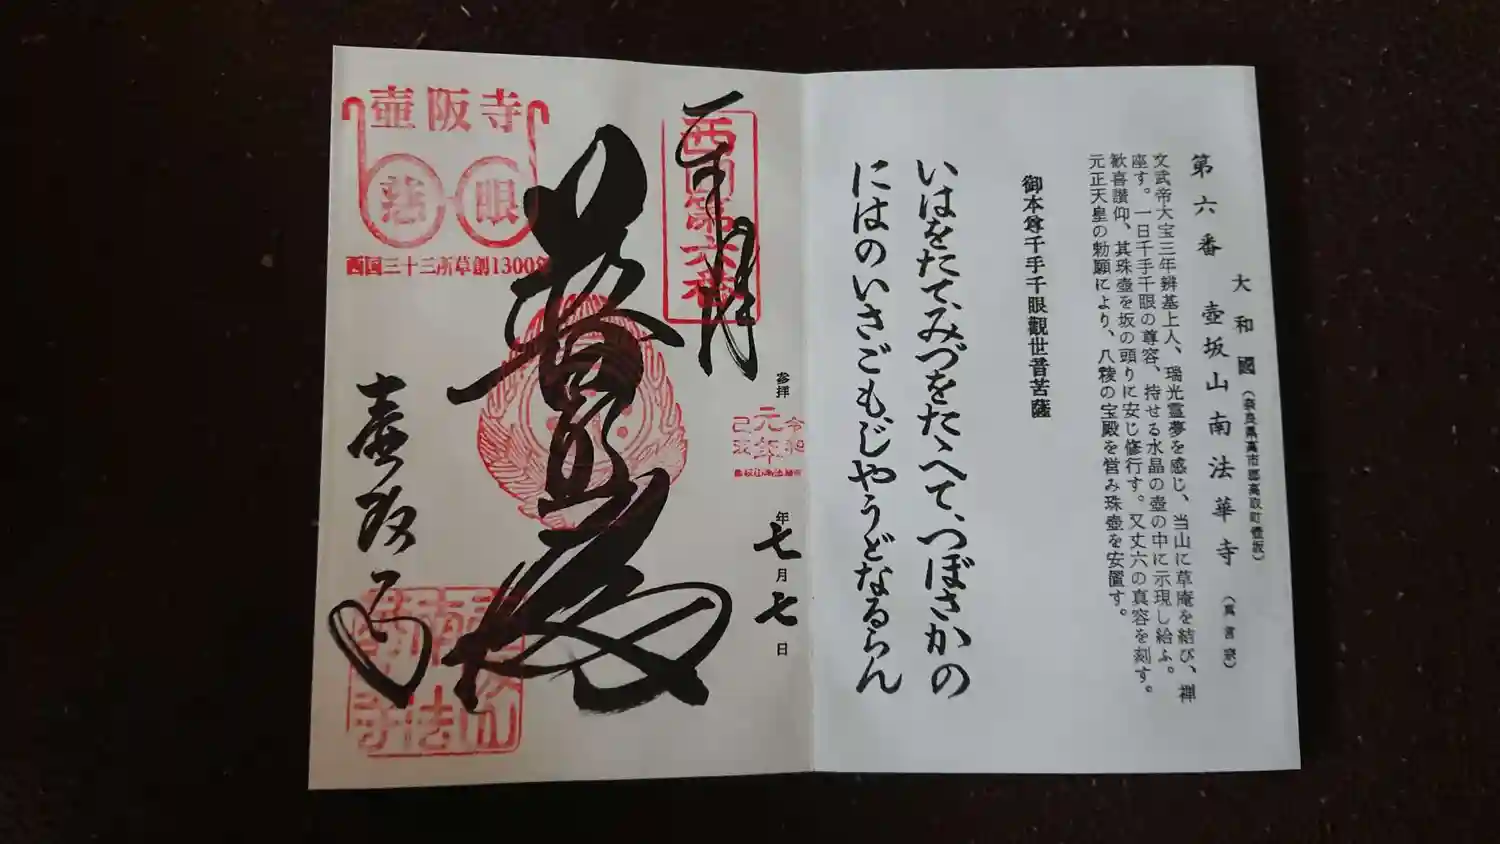 第六番　壺坂山南法華寺（真言宗）
大和國（奈良県高市郡高取町壺坂）
文武帝大宝三年辨基上人、瑞光霊夢を感じ、当山に草庵を結び、禅
座す。一日千手千眼の尊容、持せる水晶の壺の中に示現し給ふ。
歓喜讃仰、其珠壺を坂の頭りに安じ修行す。又丈六の真容を刻す。
元正天皇の勅願により、八稜の宝殿を営み珠壺を安置す。
御本尊千手千眼觀世音菩薩
いはをたて、みづをたゝへて、つぼさかの
にはのいさごも、じやうどなるらん
西国第六番
参拝
令和
元年
己亥
年七月七日
普照殿
壺阪寺
慈眼
西国三十三所草創1300年
壺阪寺